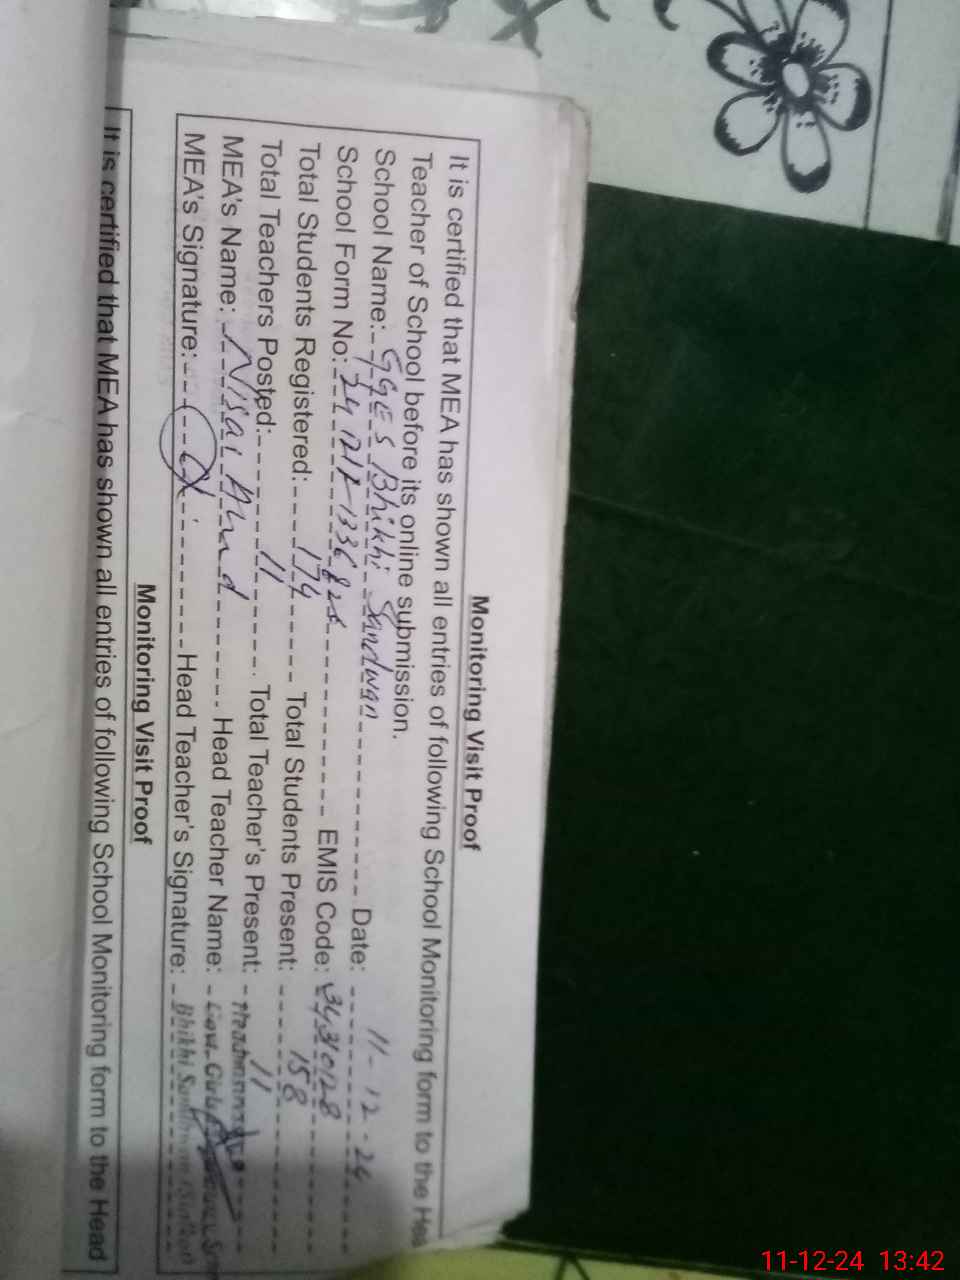 Monitoring Visit Proof
It is certified that MEA has shown all entries of following School Monitoring form to the Hea
Teacher of School before its online submission.
School Name: GGES Bhikhi Sindwan Date: 11-12-24
School Form No: EMIS Code: 34310128
Total Students Registered: 174 Total Students Present: 158
Total Teachers Posted: 11 Total Teacher's Present: 11
MEA's Name: Nisar Ahmd Head Teacher Name: Headmistress
MEA's Signature: Head Teacher's Signature: Govt. Girls
Bhikhi
Monitoring Visit Proof
It is certified that MEA has shown all entries of following School Monitoring form to the Head
11-12-24 13:42